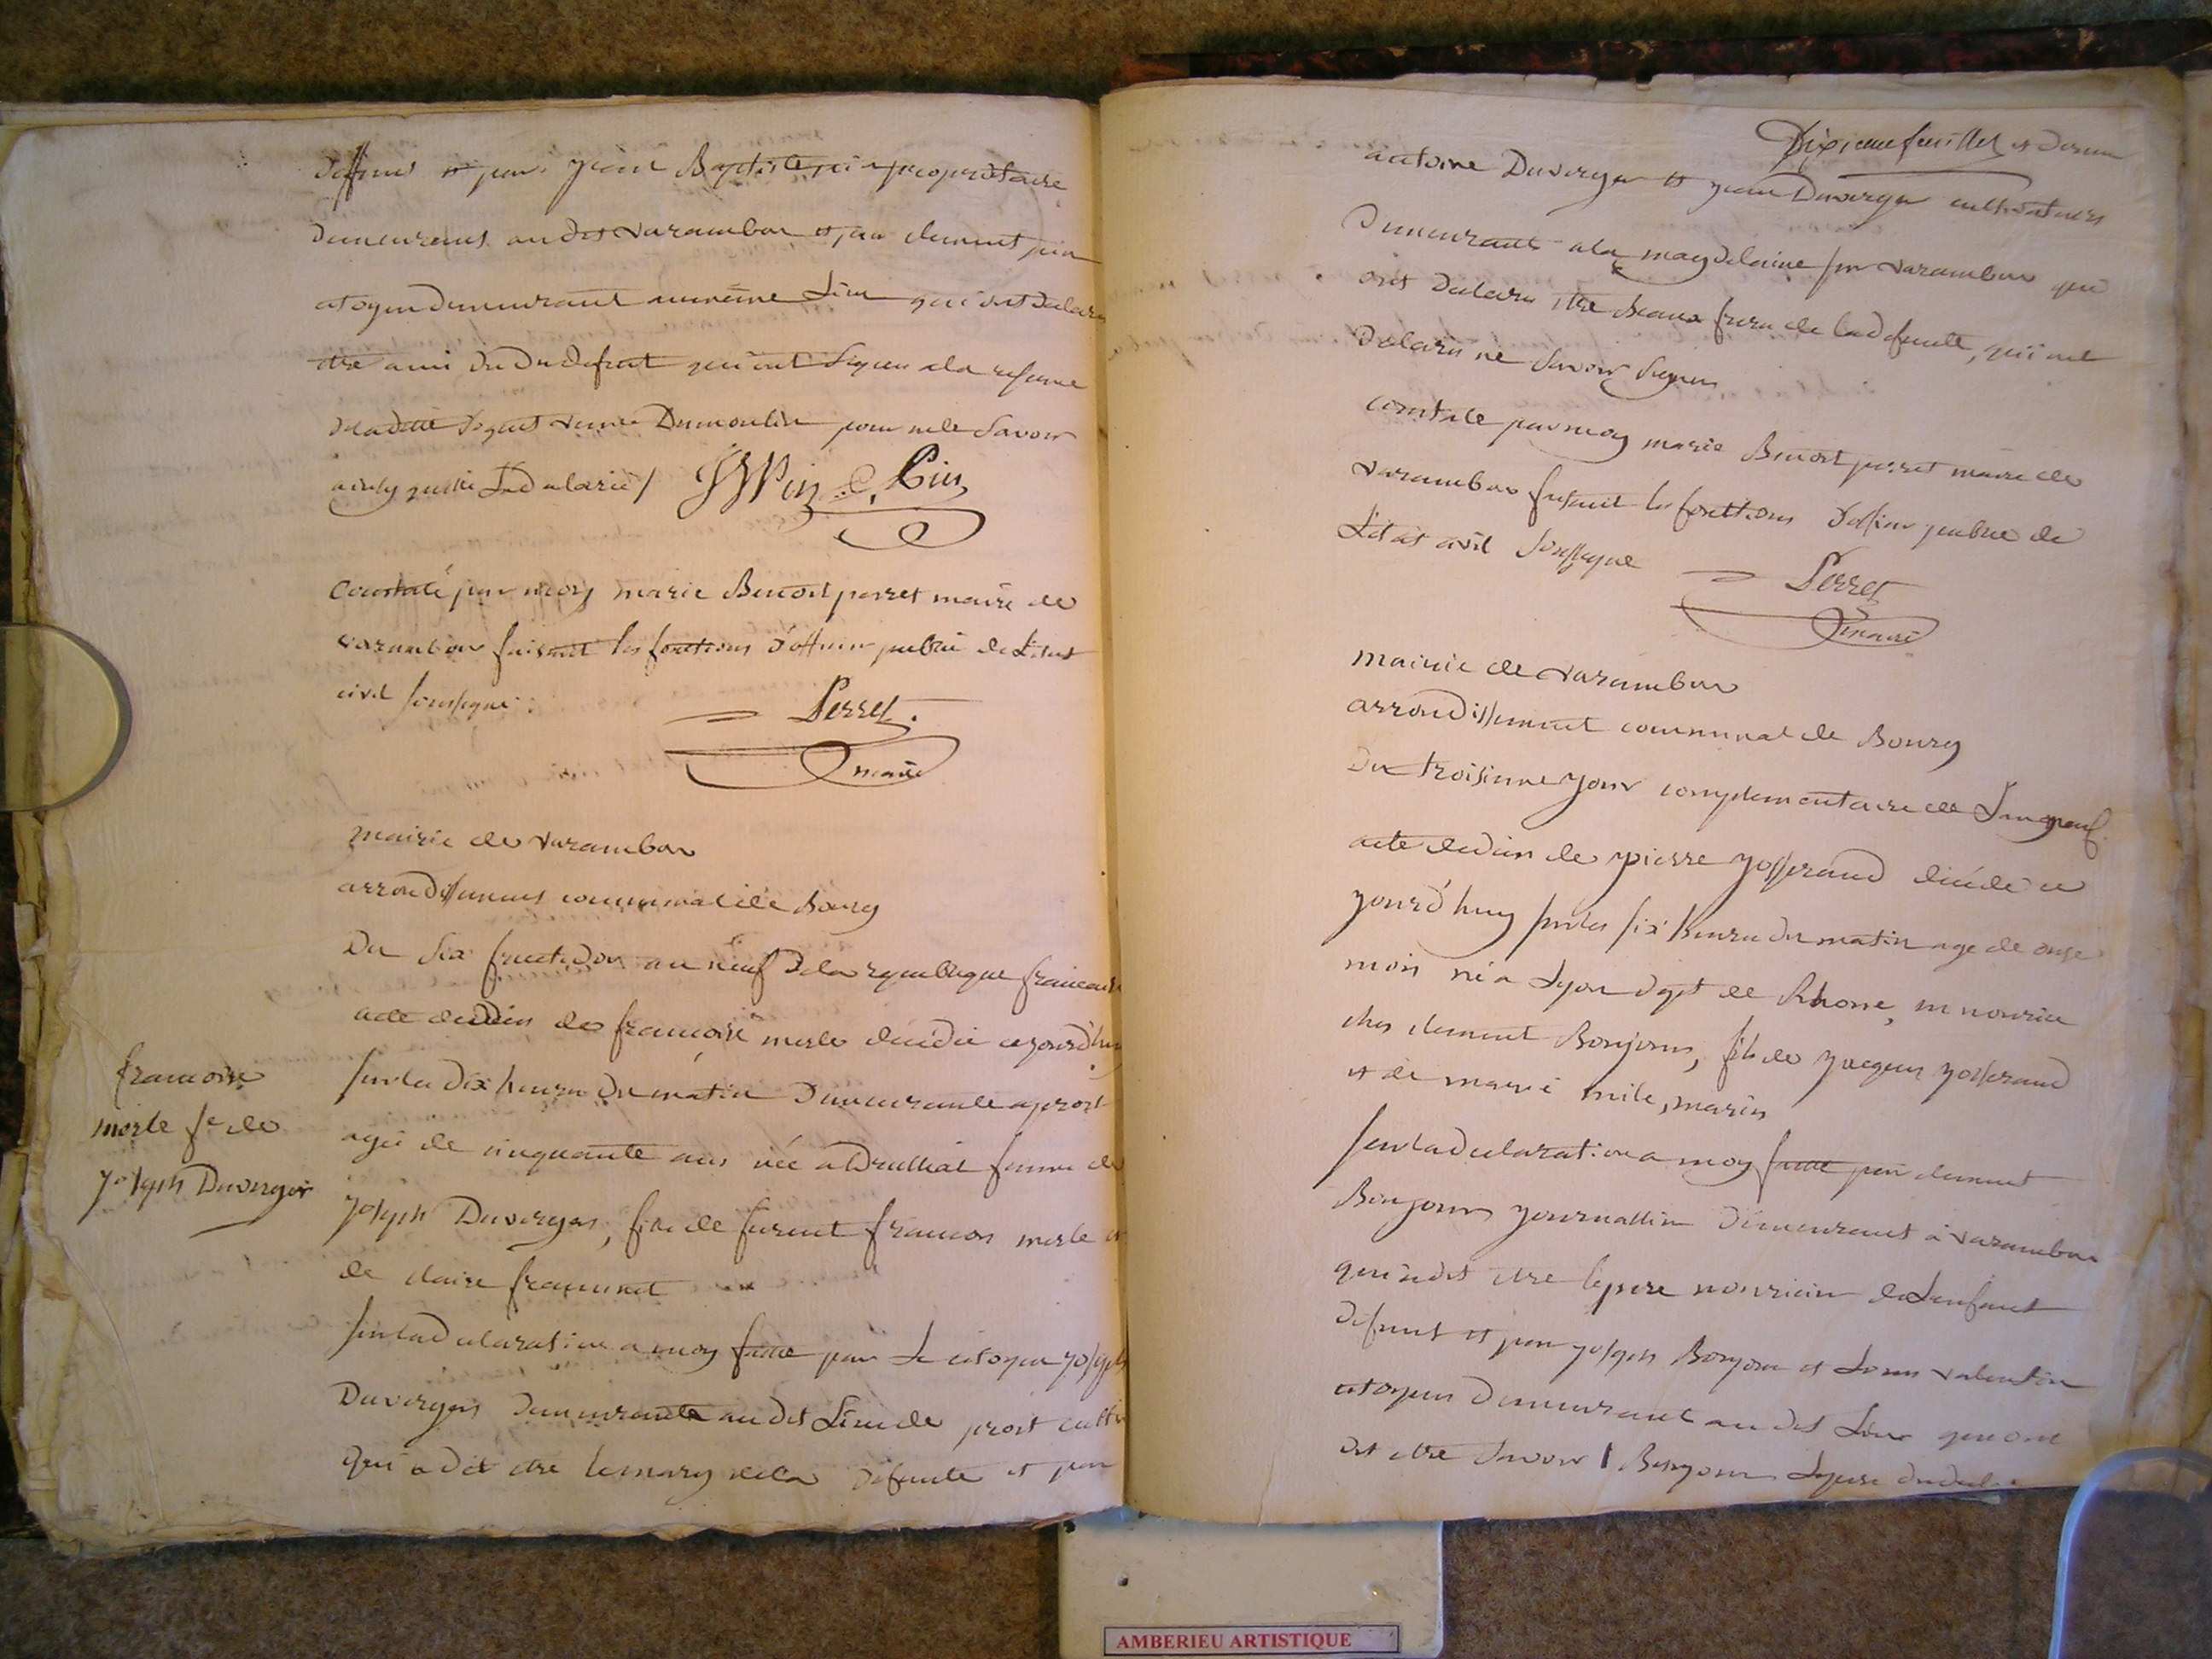 deffunt et par jean Baptiste pin propriétaire
demeurant au dit varambon et par clement pin
citoyen demeurant au même Lieu qui ont declaré
être ami du dit defunt qui ont signés a la reserve
de la ditte veuve Dumoulin pour ne le savoir
ainsy quelle L'a declaré / JBPin C. Pin
Constaté par moy marie Benoist perret maire de
varambon faisant les fonctions d'officier public de L'état
civil soussigné.
Perret.
maire
mairie de varambon
arrondissement communal de Bourg
Du six fructidor an neuf de la republique francaise
acte de décès de francoise merle décédée ce jourd'huy
sur les dix heures du matin demeurante a prost
agée de cinquante ans née a Druillat femme de
joseph Duverger, fille de furent francois merle et
de claire
francoise
merle fe de
joseph Duverger
sur la declaration a moy faitte par Le citoyen joseph
Duverger demeurante au dit Lieu de prost
qui a dit être le mary de la defunte et par
Dixieme feuillet et dernier
antoine Duverger et jean Duverger cultivateurs
demeurant a la magdelaine sur varambon qui
ont declaré être Beaux freres de la defunte, qui ont
declaré ne savoir signer
constaté par moy marie Benoist perret maire de
varambon faisant les fonctions d'officier public de
L'état civil soussigné
Perret
maire
mairie de varambon
arrondissement communal de Bourg
Du troisieme jour complementaire de L'an neuf
acte de décès de pierre josserand décédé ce
jourd'huy sur les six heures du matin age de onze
mois né a Lyon dept de Rhone, en nourice
ches clement Bonjour, fils de jacques josserand
et de marie mariés
sur la declaration a moy faitte par clement
Bonjour journallier demeurant à varambon
qui a dit être le pere nouricier de L'enfant
defunt et par joseph Bonjour et Louis valentin
citoyens demeurant au dit Lieu qui ont
dit être savoir Bonjour Le pere du
AMBERIEU ARTISTIQUE